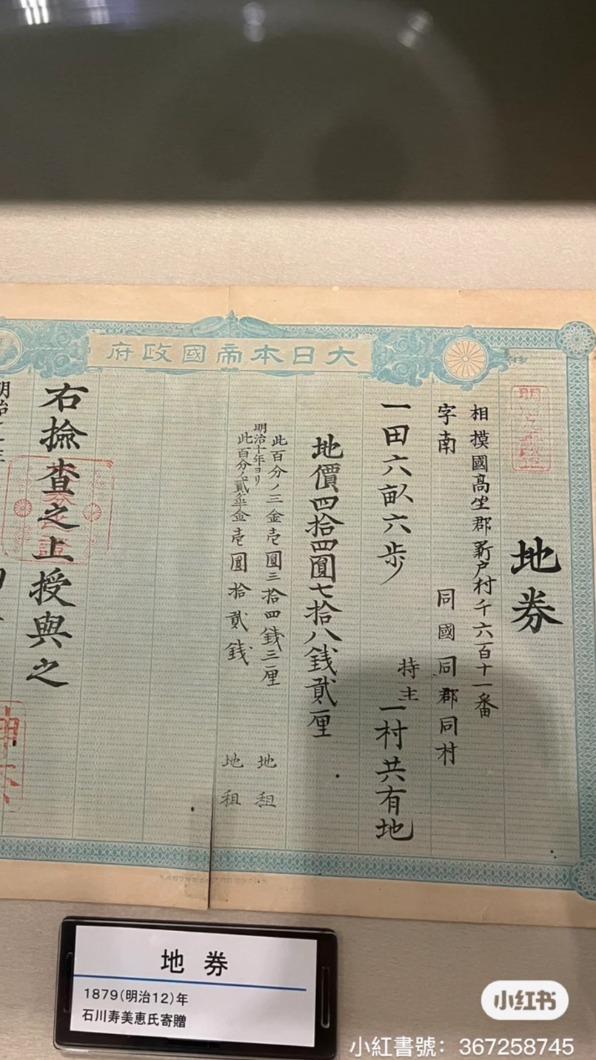 大日本帝國政府
地券
相摸國高坐郡新戸村千六百十一番
字南
同國同郡同村
一田六畝六歩
持主
一村共有地
地價四拾四圓七拾八錢貳厘
此百分ノ三金壱圓三拾四錢三厘
地租
明治十年ヨリ
此百分ノ貳半金壱圓拾貳錢
地租
右撿査之上授與之
地券
1879(明治12)年
石川寿美恵氏寄贈
小红书
小紅書號：367258745